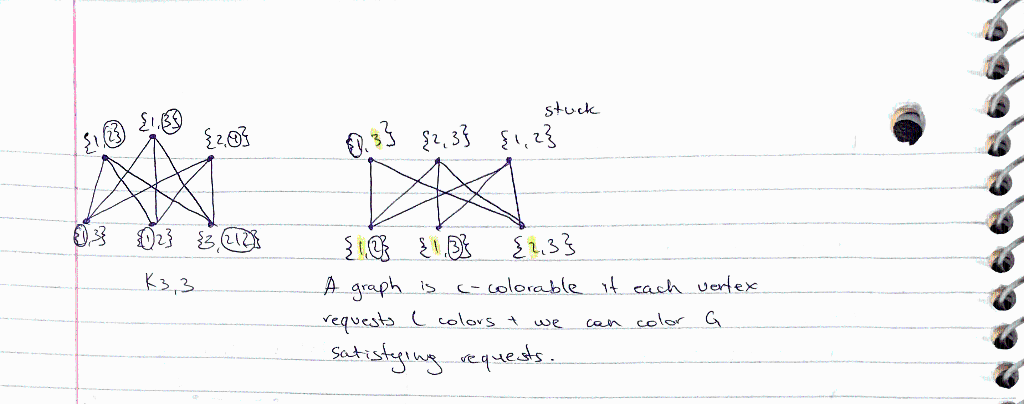 stuck
{1,2} {1,3} {2,4} {1,3} {2,3} {1,2}
{1,3} {1,2} {3,212} {1,2} {1,3} {2,3}
K3,3 A graph is c-colorable if each vertex
requests C colors + we can color G
satisfying requests.